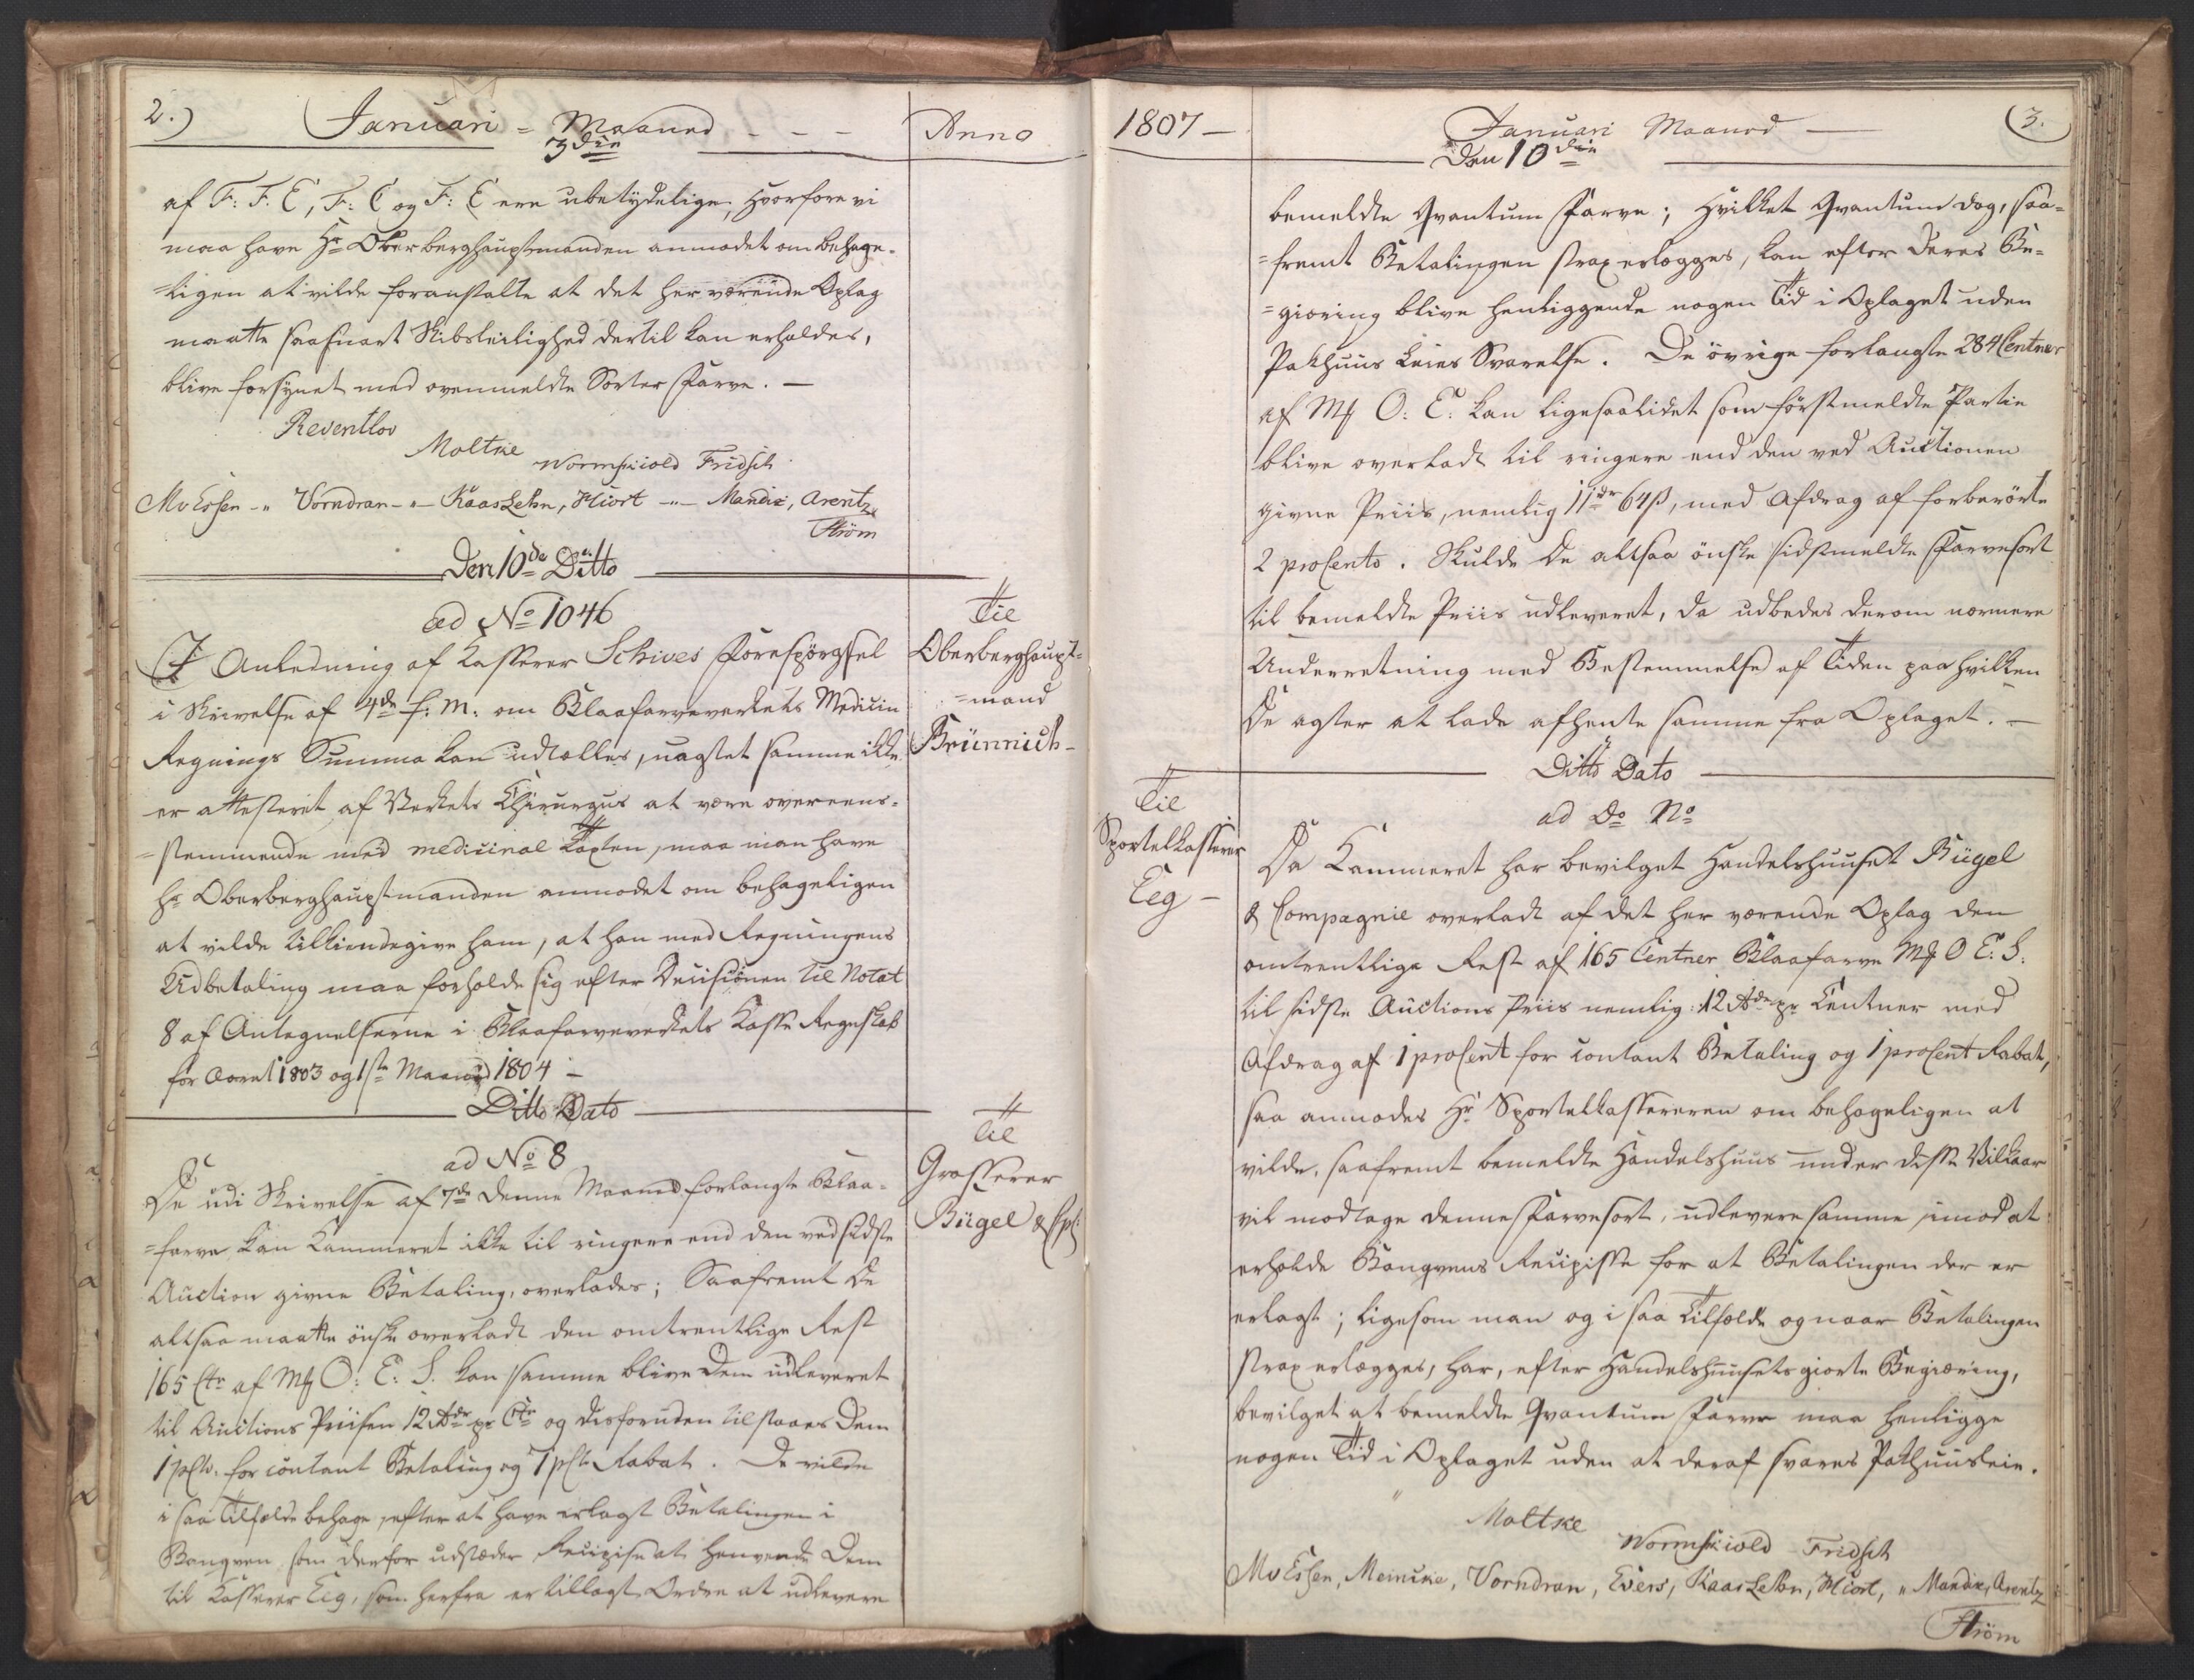 2.)
Januari = Maaned - - -
Anno
3die
af F: F. E, F: C og F: E ere ubetydelige, hvorfore vi
maa have Hr Oberberghauptmanden anmodet om behage-
=ligen at vilde foranstalte at det her værende Oplag
maatte saasnart Skibsleilighed dertil kan erholdes,
blive forsynet med ovenmeldte Sorter Farve. —
Reventlov
Moltke
Wormskiold Fridsch
Mv Essen -" Vorndran -"- KaasLehn, Hiort -"- Mandix, Arentz
Strøm
Den 10de Ditto
ad No 1046
Til
Oberberghaupt=
=mand
Brünnich -
I Anledning af Kasserer Schives Forespørgsel
i Skrivelse af 4de f: M: om Blaafarveverkets Medicin
Regnings Summa kan udtælles, uagtet samme ikke
er attesteret af Verkets Chirurgus at være overeens-
=stemmende med medicinal Taxten, maa man have
Hr Oberberghauptmanden anmodet om behageligen
at vilde tilkiendegive ham, at han med Regningens
Udbetaling maa forholde sig efter Decisionen til Notat
8 af Antegnelserne i Blaafarveverkets Kasse Regnskab
for Aaret 1803 og 1ste Maaned 1804 —
Ditto Dato
ad No 8
Til
Grosserer
Bügel & Cp:
De udi Skrivelse af 7de denne Maaned forlangte Blaa-
=farve kan Kammeret ikke til ringere end den ved sidste
Auction givne Betaling, overlades; Saafremt De
altsaa maatte ønske overladt den omtrentlige Rest
165 Ctr af Mk O: E: S. kan samme blive Dem udleveret
til Auctions Priisen 12 Rdr pr Ctr og desforuden tilstaaes Dem
1 pCto. for contant Betaling og 1 pCto Rabat. De vilde
i saa Tilfælde behage, efter at have erlagt Betalingen i
Banqven som derfor udstæder Recipisse at henvende Dem
til Kasserer Eeg, som herfra er tillagt Ordre at udlevere
1807 —
Januari Maaned —
(3.
Den 10die
bemeldte Qvantum Farve; hvilket Qvantum dog, saa-
=fremt Betalingen strax erlægges, kan efter Deres Be-
=giøring blive henliggende nogen Tid i Oplaget uden
Pakhuus Leies Svarelse. De øvrige forlangte 284 Centner
af Mk O: E: kan ligesaalidet som førstmeldte Partie
blive overladt til ringere end den ved Auctionen
givne Priis, nemlig 11 rdr 64 ß, med Afdrag af forberørte
2 proCento. Skulde De altsaa ønske sidstmeldte Farvesort
til bemeldte Priis udleveret, da udbedes derom nærmere
Underretning med Bestemmelse af Tiden paa hvilken
De agter at lade afhente samme fra Oplaget. —
Ditto Dato
ad Do No
Til
Sportelkasserer
Eeg —
Da Kammeret har bevilget Handelshuuset Bügel
& Compagnie overladt af det her værende Oplag den
omtrentlige Rest af 165 Centner Blaafarve Mk O E: S:
til sidste Auctions Priis nemlig: 12 Rdr pr Centner med
Afdrag af 1 proCent for contant Betaling og 1 proCent Rabat,
saa anmodes Hr Sportelkassereren om behageligen at
vilde, saafremt bemeldte Handelshuus under disse Vilkaar
vil modtage denne Farvesort, udlevere samme imod at
erholde Banqvens Recipisse for at Betalingen der er
erlagt; ligesom man og i saa Tilfælde og naar Betalingen
strax erlægges, har, efter Handelshuusets giorte Begiæring,
bevilget at bemeldte Qvantum Farve maa henligge
nogen Tid i Oplaget uden at deraf svares Pakhuusleie.
Moltke
Wormskiold Fridsch
Mv Essen, Meincke, Vorndran, Evers, KaasLehn, Hiort, " Mandix, Arentz
Strøm